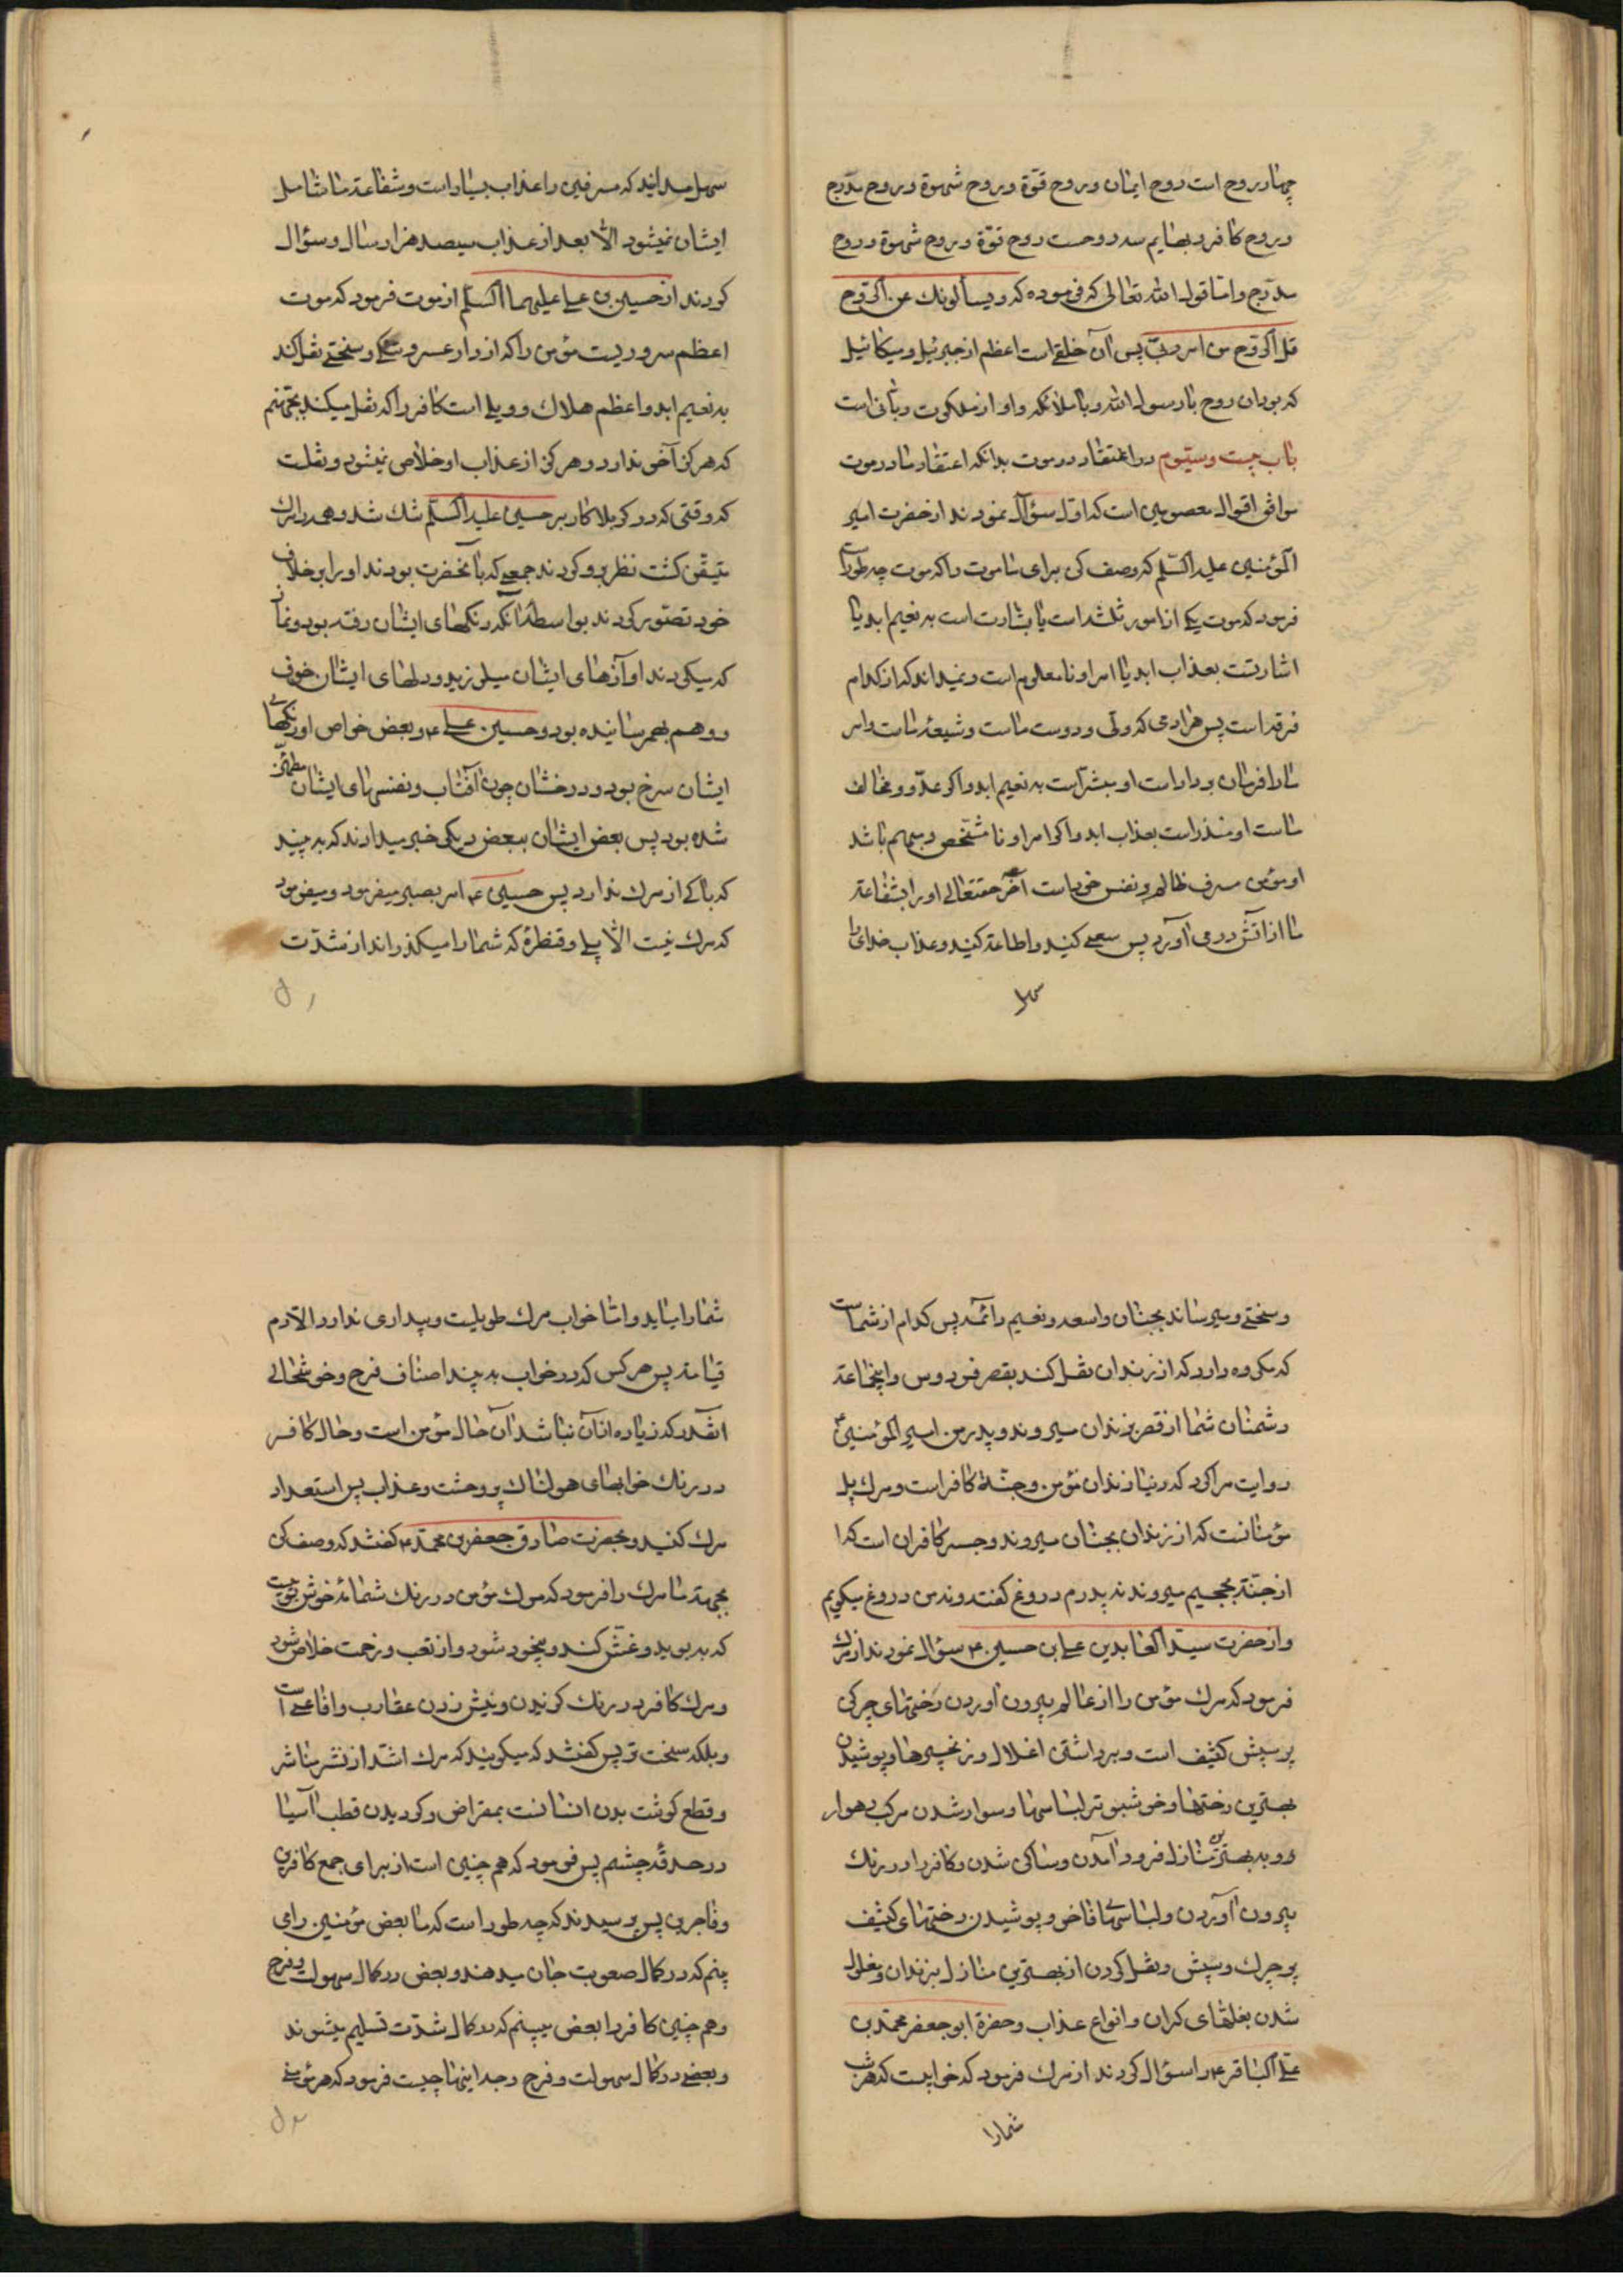 چهار روح است روح ایمان و روح قوّة و روح شهوة و روح مدرج
و روح کافر و بهایم سه روحست روح قوّة و روح شهوة و روح
مدرج و امّا قول الله تعالی که فرموده که و یسألونك عن الرّوح
قل الرّوح من امر ربّی پس آن خلقی است اعظم از جبرئیل و میکائیل
که بود آن روح با رسول الله و با ملائکه و او از ملکوت ربانی است
باب بیست و سیّوم در اعتقاد در موت بدانکه اعتقاد ما در موت
موافق اقوال معصومین است که اوّل سؤال نمودند از حضرت امیر
المؤمنین علیه السّلم که وصف کن برای ما موت را که موت چه طور است
فرمود که موت یکی از امور ثلثه است یا بشارت است به نعیم ابد یا
اشارتست بعذاب ابد یا امر او نامعلوم است و نمیداند که از کدام
فرقه است پس هرآدمی که ولی و دوست ماست و شیعهٔ ماست و امر
ما را فرمان بردار است او مبشّر است به نعیم ابد و اگر عدوّ و مخالف
ماست او منذر است بعذاب ابد و اگر امر او نا مشخّص و مبهم باشد
او مؤمن مسرف ظالم و نفس خود است آخر حقتعالی او را بشفاعة
ما از آتش درمی آورد پس سعی کنید و اطاعة کنید و عذاب خدای را
سهل
سهل مدانید که مسرفین را عذاب بسیار است و شفاعة ما شامل
ایشان نمیشود الّا بعد از عذاب سیصد هزار سال و سؤال
کردند از حسین بن علی علیهما السّلم از موت فرمود که موت
اعظم سروریست مؤمن را که از دار عسر و تنگی و سختی نقل کند
به نعیم ابد و اعظم هلاك و ویلی است کافر را که نقل میکند بجهنّم
که هرگز آخر ندارد و هرگز از عذاب او خلاص نمیشود و نقلست
که وقتی که در کربلا کار بر حسین علیه السّلم تنك شد و همه را مرك
متیقّن گشت نظر برو کردند جمعی که با آنحضرت بودند او را بر خلاف
خود تصوّر کردند بواسطه آنکه رنگهای ایشان رفته بود و نماز
که میکردند آوازهای ایشان میلرزید و دلهای ایشان خوف
و وهم بهم رسانیده بود و حسین علی ع و بعض خواص او رنگهای
ایشان سرخ بود و درخشان چون آفتاب و نفسهای ایشان مطمئن
شده بود پس بعض ایشان ببعض دیگر خبر میدادند که به بینید
که باکی از مرك ندارد پس حسین ع امر بصبر میفرمود و میفرمود
که مرك نیست الّا پلی و قنطرهٔ که شما را میگذراند از شدّت
و سختی و میرساند بجنان واسعه و نعیم دائمه پس کدام از شماست
که مکروه دارد که از زندان نقل کند بقصر فردوس و اینجماعة
دشمنان شما از قصر بزندان میروند و پدر من امیر المؤمنین ع
روایت مرا کرد که دنیا زندان مؤمن و جنّة کافر است و مرك پل
مؤمنانست که از زندان بجنان میروند و جسر کافران است که ا
از جنّة بجحیم میروند نه پدرم دروغ گفتند و نه من دروغ میگویم
و از حضرت سیّد العابدین علی بن حسین ع سؤال نمودند از مرك
فرمود که مرك مؤمن را از عالم بیرون آوردن رختهای چرکی
پر سپش کثیف است و برداشتن اغلال و زنجیرها و پوشیدن
بهترین رختها و خوشبو تر لباسها و سوار شدن مرکب رهوار
و و به بهترین منازل فرود آمدن و ساکن شدن و کافر را در رنك
بیرون آوردن و لباسهای فاخر و پوشیدن رختهای کثیف
پر چرك و سپش و نقل کردن از بهترین منازل بزندان و مغلول
شدن بغلهای گران و انواع عذاب و حضرة ابو جعفر محمّد بن
علی الباقر ع را سؤال کردند از مرك فرمود که خوابیست که هر شب
شما را
شما را میاید و امّا خواب مرك طویلست و بیداری ندارد الّا روز
قیامة پس هر کس که در خواب به بیند اصناف فرح و خوشحالی
آنقدر که زیاده از آن نباشد آن حال مؤمن است و حال کافر
در رنك خوابهای هولناك پر وحشت و عذاب پس استعداد
مرك کنید و بحضرت صادق جعفر بن محمّد ع گفتند که وصف کن
بجهة ما مرك را فرمود که مرك مؤمن در رنك شمامهٔ خوش بوییست
که به بوید و غش کند و بیخود شود و از تعب و زحمت خلاص شود
و مرك کافر در رنك گزیدن و نیش زدن عقارب و افاعی است
و بلکه سخت تر پس گفتند که میگویند که مرك اشد از نشر مناشر
و قطع گوشت بدن انسانست بمقراض و گردیدن قطب آسیا
در حدقهٔ چشم پس فرمود که هم چنین است از برای جمع کافرین
و فاجرین پس پرسیدند که چه طور است که ما بعض مؤمنین را می
بینم که در کمال صعوبت جان میدهند و بعض در کمال سهولت و فرح
و هم چنین کافر را بعض میبینم که در کمال شدّت تسلیم میشوند
و بعضی در کمال سهولت و فرح وجه اینها چیست فرمود که هر مؤمنی